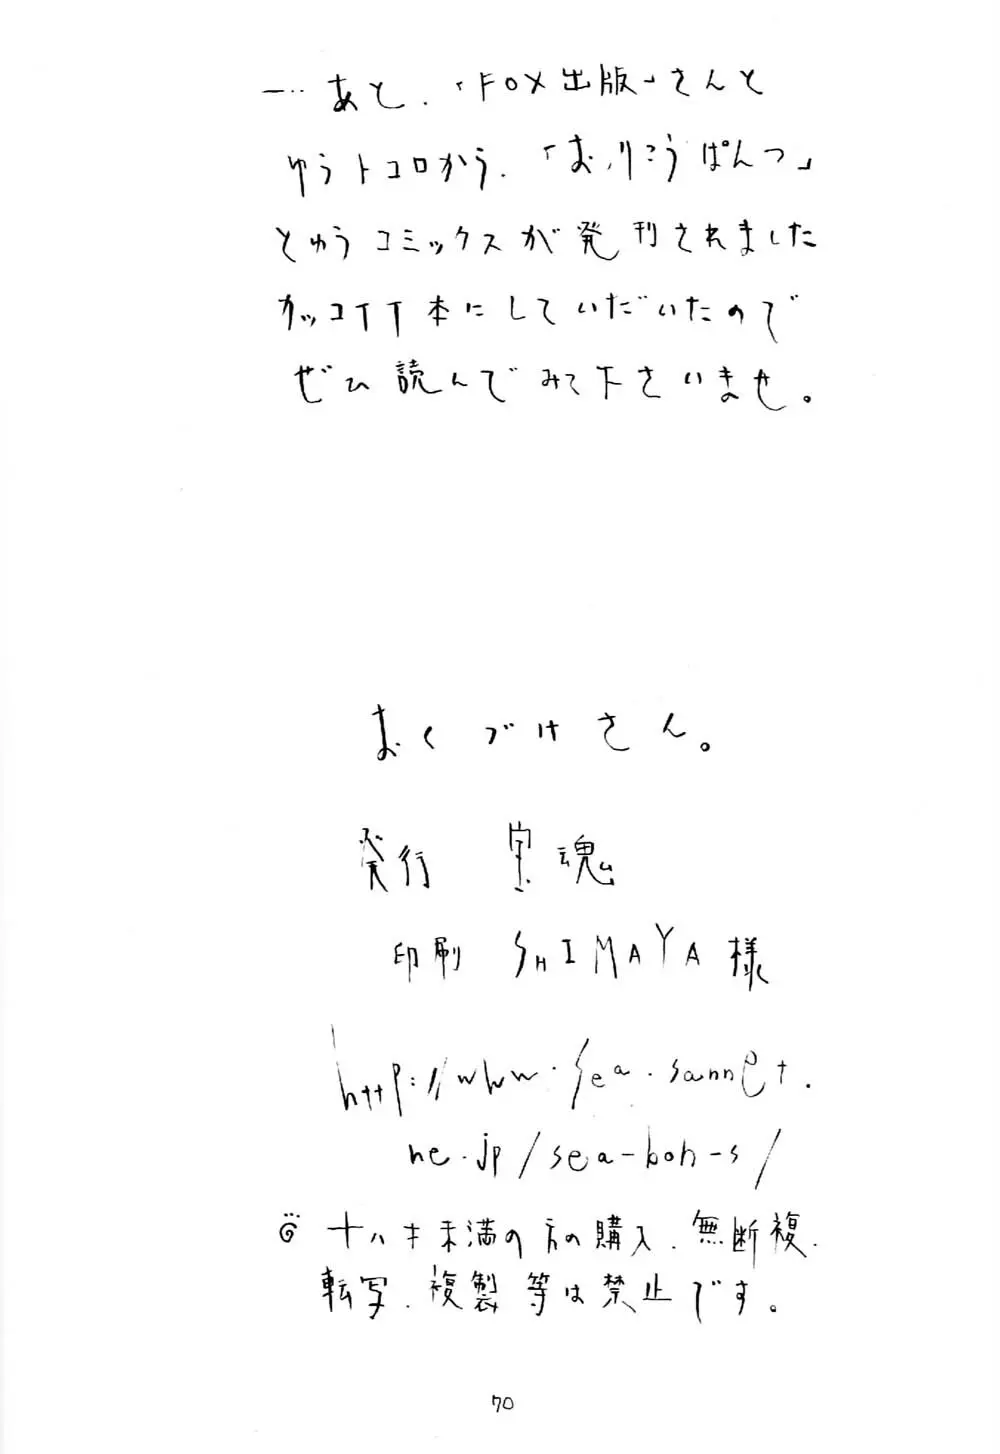 ―‥あと、「FOX出版」さんと
ゆうトコロから、「おりこうぱんつ」
とゆうコミックスが発刊されました
カッコイイ本にしていだいたので
ぜひ読んでみて下さいませ。
おくづけさん。
発行 宝魂
印刷 SHIMAYA様
http://www.sea.sannet.
ne.jp/sea-bon-s/
十八才未満の方の購入、無断複
転写、複製等は禁止です。
70